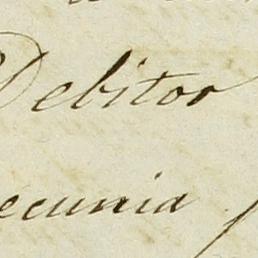 Debitor
ecunia